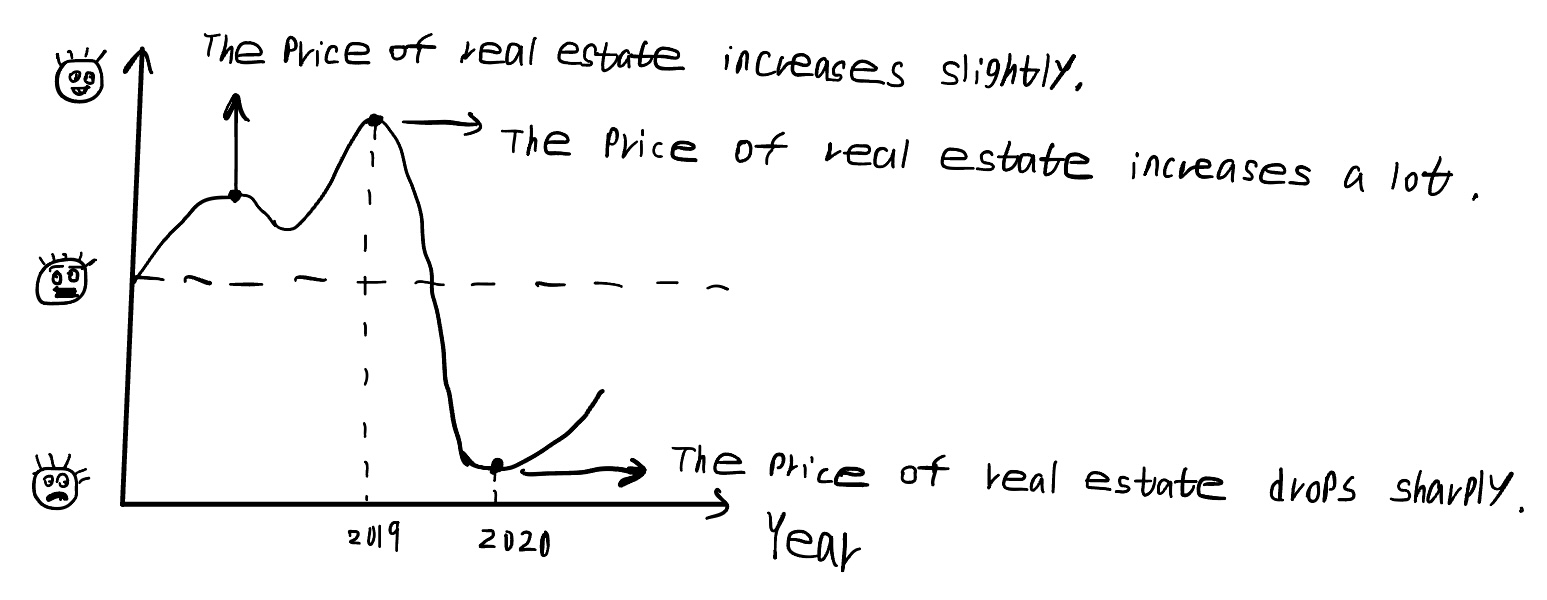 The Price of real estate increases slightly.
The Price of real estate increases a lot.
The price of real estate drops sharply.
2019
2020
Year